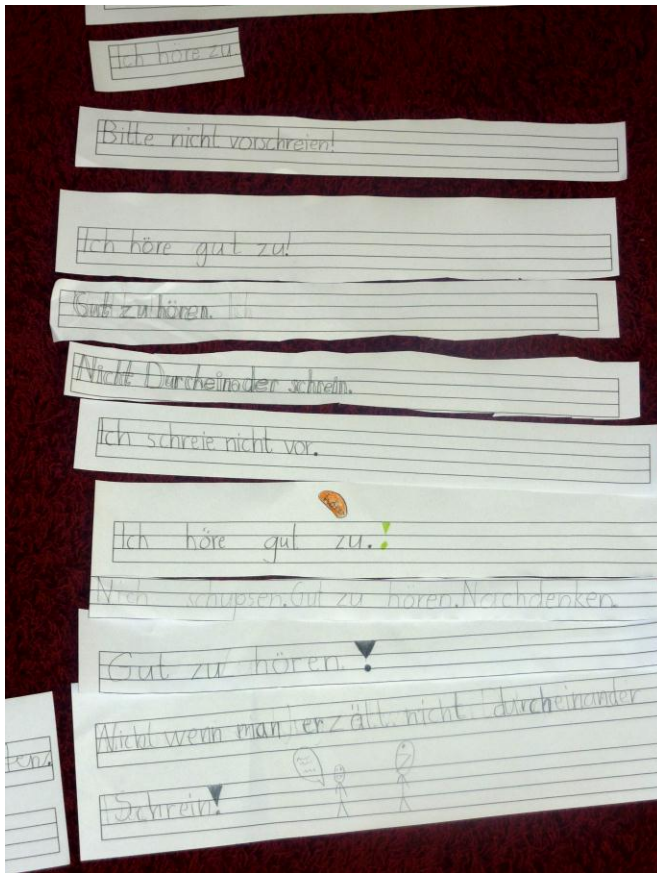 Ich höre zu
Bitte nicht vorschreien!
Ich höre gut zu!
Gut zu hören.
Nicht Durcheinader schrein.
Ich schreie nicht vor.
Ich höre gut zu.!
Nich schupsen.Gut zu hören.Nachdenken.
Gut zu hören.!
Nicht wenn man erzält nicht durcheinander
Schrein!